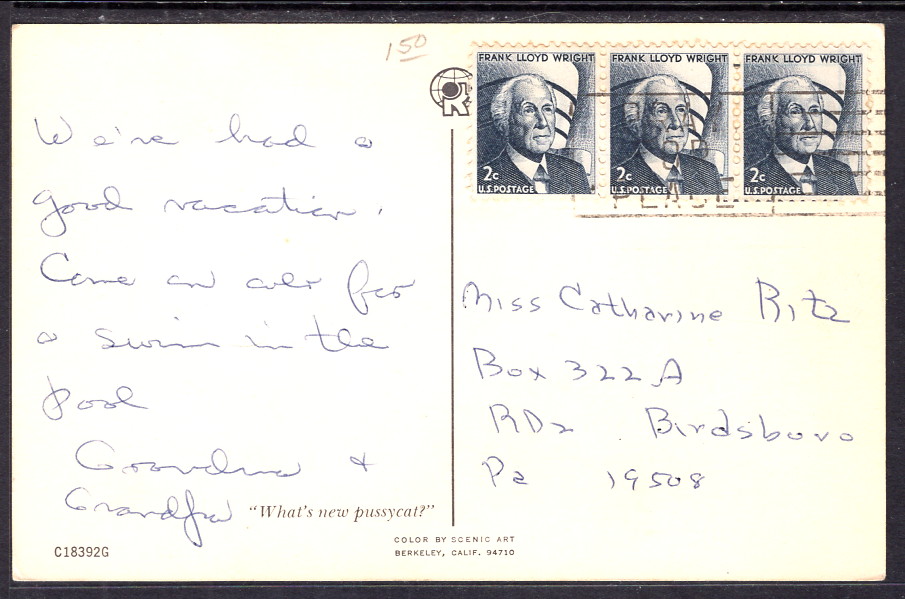 150
We've had a
good vacation.
Come on over for
a swim in the
pool
Grandma &
Grandpa
"What's new pussycat?"
C18392G
COLOR BY SCENIC ART
BERKELEY, CALIF. 94710
FRANK LLOYD WRIGHT
2c
U.S. POSTAGE
FRANK LLOYD WRIGHT
2c
U.S. POSTAGE
FRANK LLOYD WRIGHT
2c
U.S. POSTAGE
PEACE
Miss Catharine Ritz
Box 322 A
RD2 Birdsboro
Pa 19508